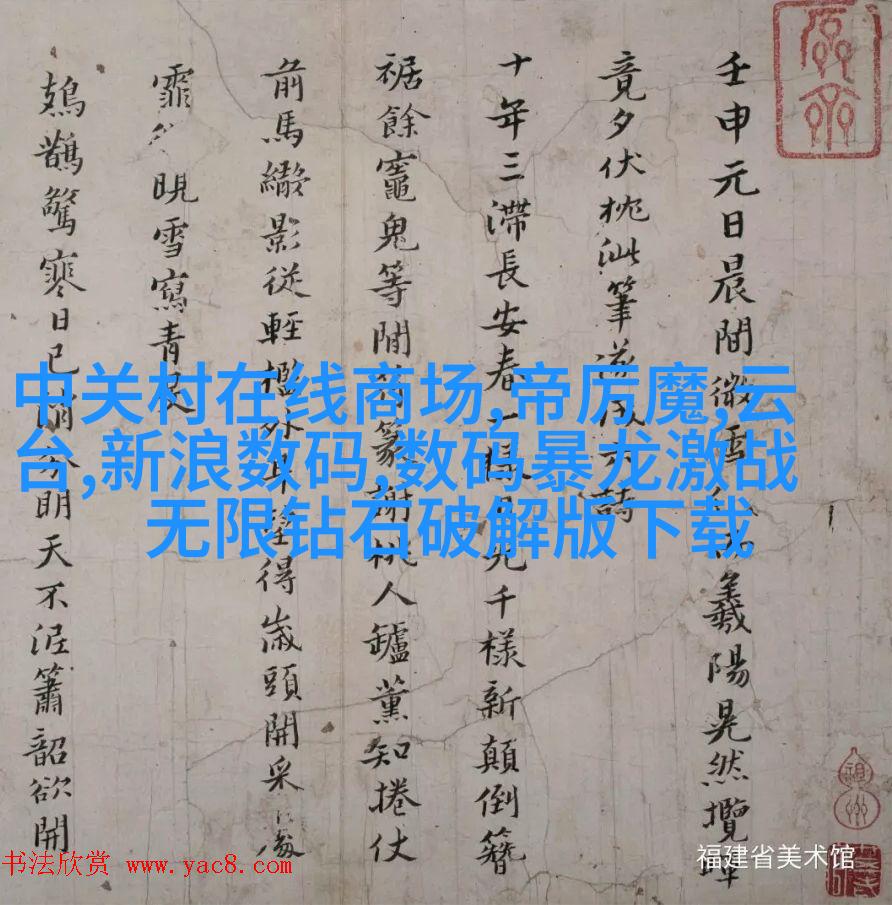 壬申元日晨間微雪 羲陽晃然攬
竟夕伏枕泚筆 詩
十年三滯長安春 千樣新顛倒簪
裾餘竈鬼等閒 篆謝桃人鑪薰知捲仗
前馬 影從輕 外 得歲頭開采
霏 晛雪寫青
鳷鵲驚寒日已 明天不 簫韶欲開
中关村在线商场,帝厉魔,云
台,新浪数码,数码暴龙激战
无限钻石破解版下载
书法欣赏 www.yac8.com
福建省美术馆